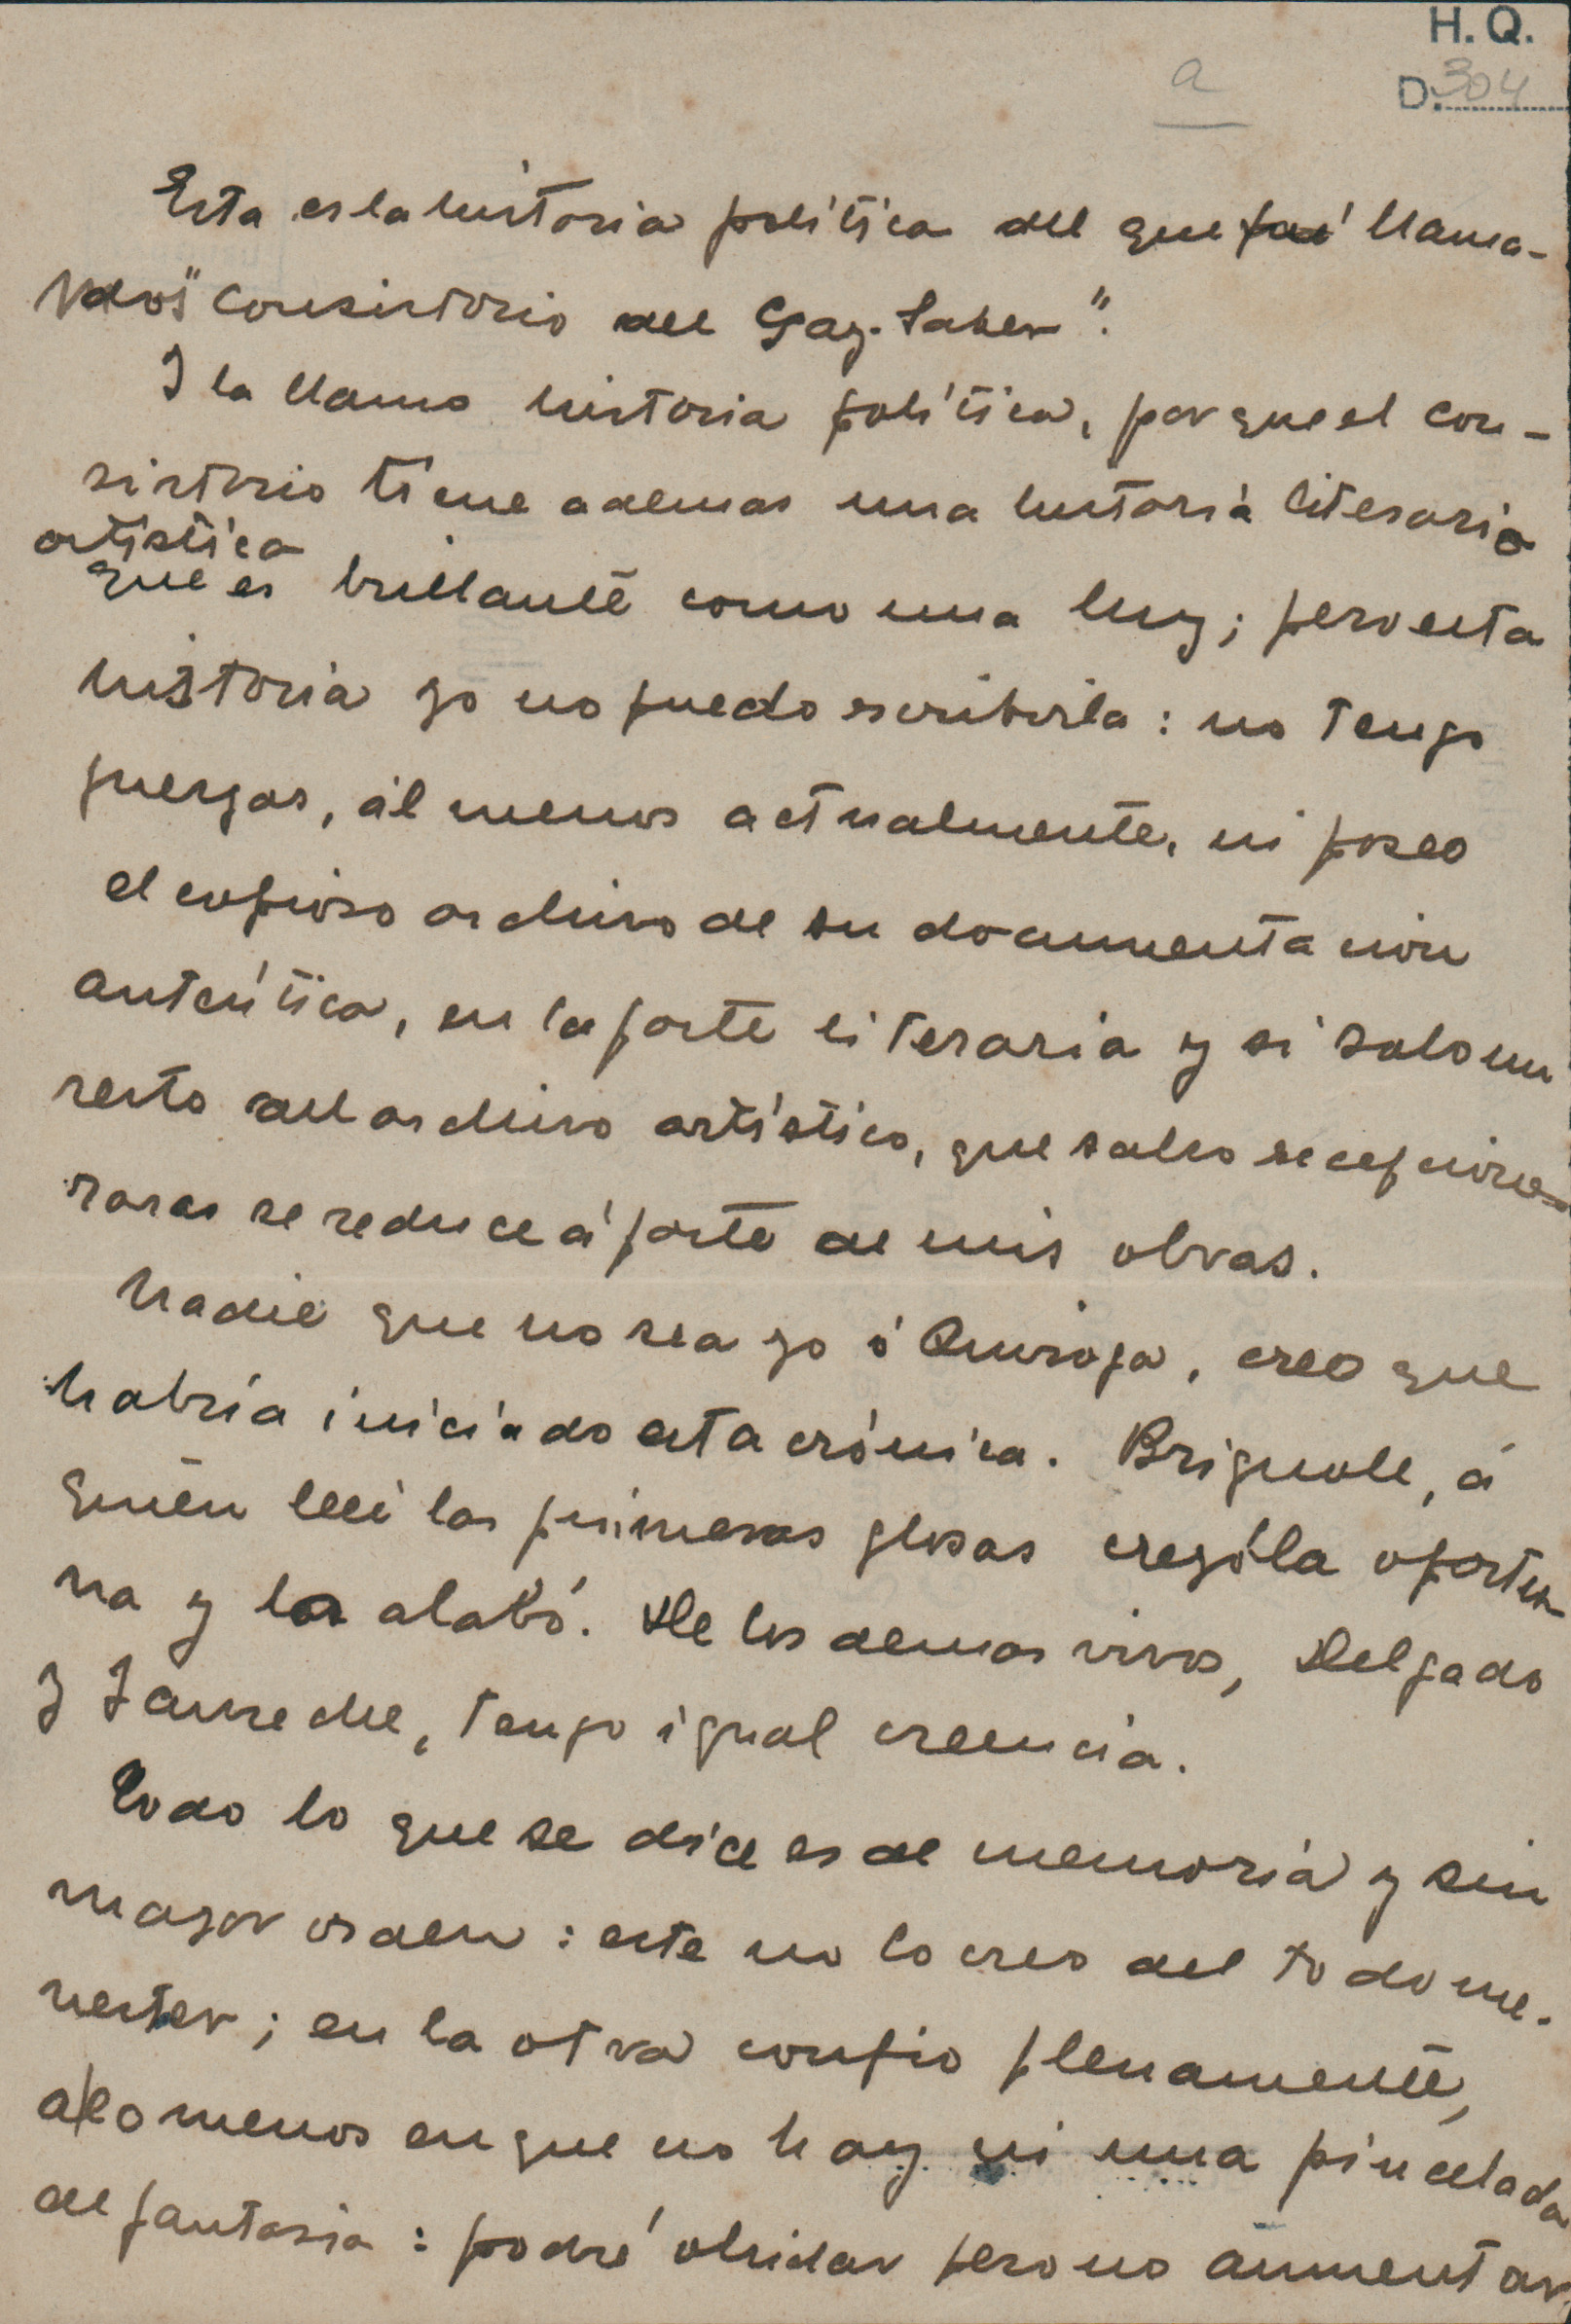 H. Q.
a
D. 304
Esta es la historia politica del que fué llama-
dos "Consistorio del Gay-Saber".
I la llamo historia política, por que el con-
sistorio tiene ademas una historia literaria
artística
que es brillante como una luz; pero esta
historia yo no puedo escribirla: no tengo
fuerzas, al menos actualmente, ni poseo
el copioso archivo de su documentacion
auténtica, en la parte literaria y si solo un
resto del archivo artístico, que salvo excepciones
raras se reduce á parte de mis obras.
Nadie que no sea yo ó Quiroga, creo que
habría iniciado esta crónica. Brignole, á
quien leeí las primeras glosas creyóla oportu
na y las alabó. De los demas vivos, Delgado
y Jaureche, tengo igual creencia.
Todo lo que se dice es de memoria y sin
mayor orden: este no lo creo del todo me-
nester; en la otra confio plenamente,
a lo menos en que no hay ni una pincelada
de fantasia: podré olvidar pero no aumentar,